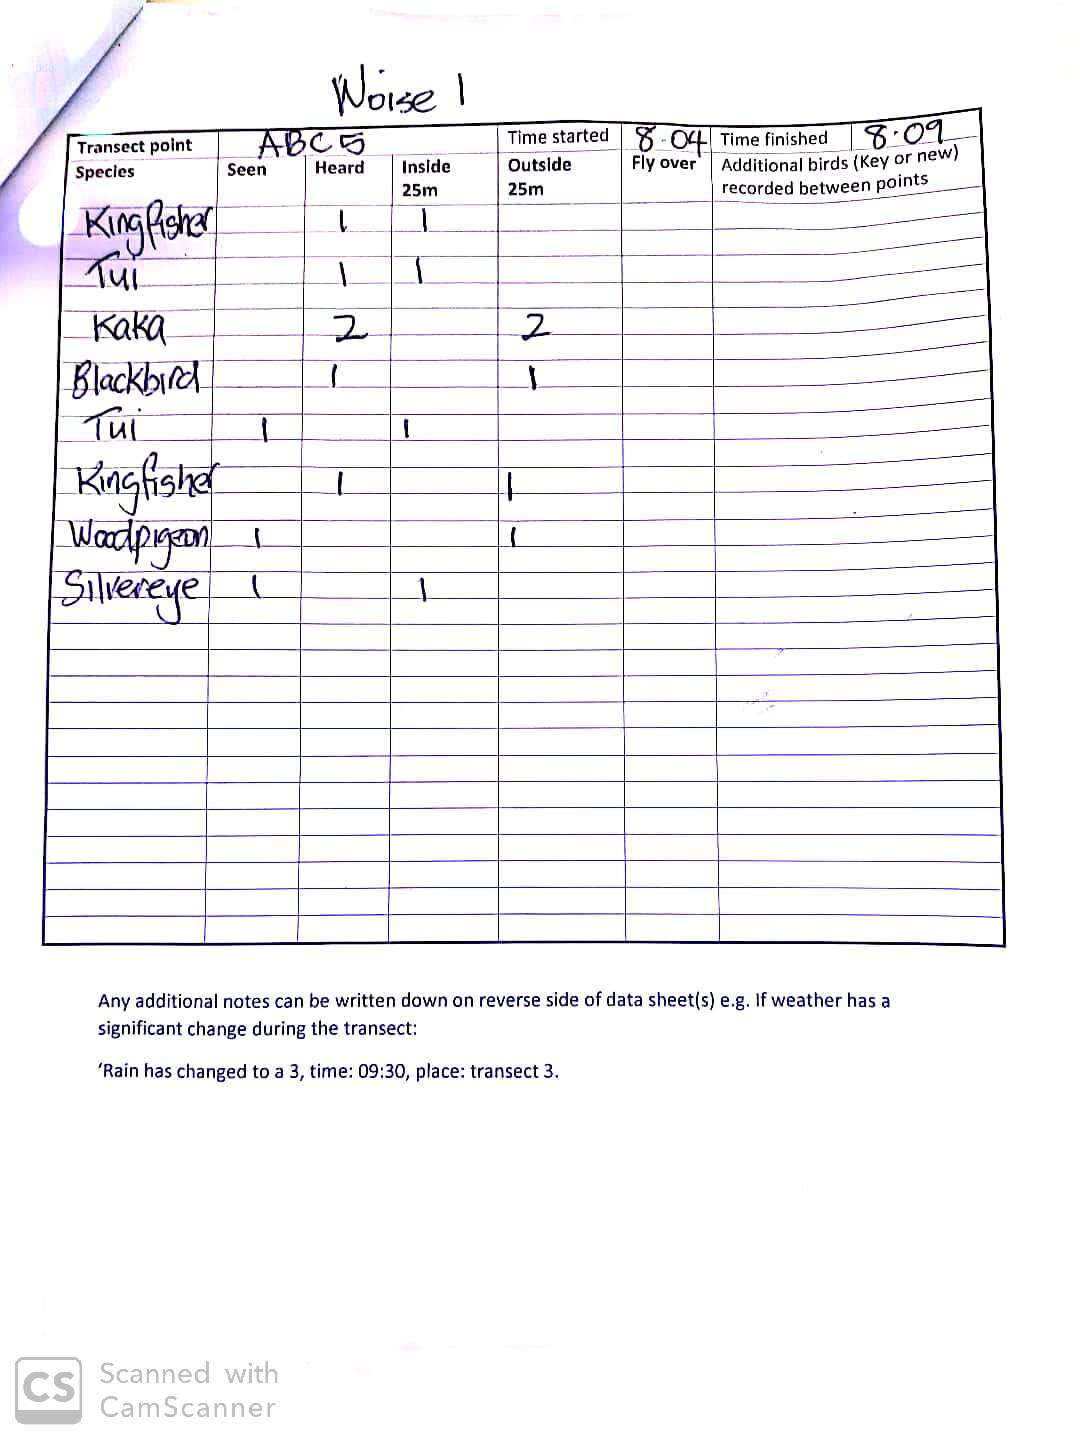 Noise 1
Transect point ABC5 Time started 8-04 Time finished 8.09
Species Seen Heard Inside 25m Outside 25m Fly over Additional birds (Key or new) recorded between points
Kingfisher 1 1
Tui 1 1
Kaka 2 2
Blackbird 1 1
Tui 1 1
Kingfisher 1 1
Woodpigeon 1 1
Silvereye 1 1
Any additional notes can be written down on reverse side of data sheet(s) e.g. If weather has a
significant change during the transect:
‘Rain has changed to a 3, time: 09:30, place: transect 3.
CS Scanned with
CamScanner